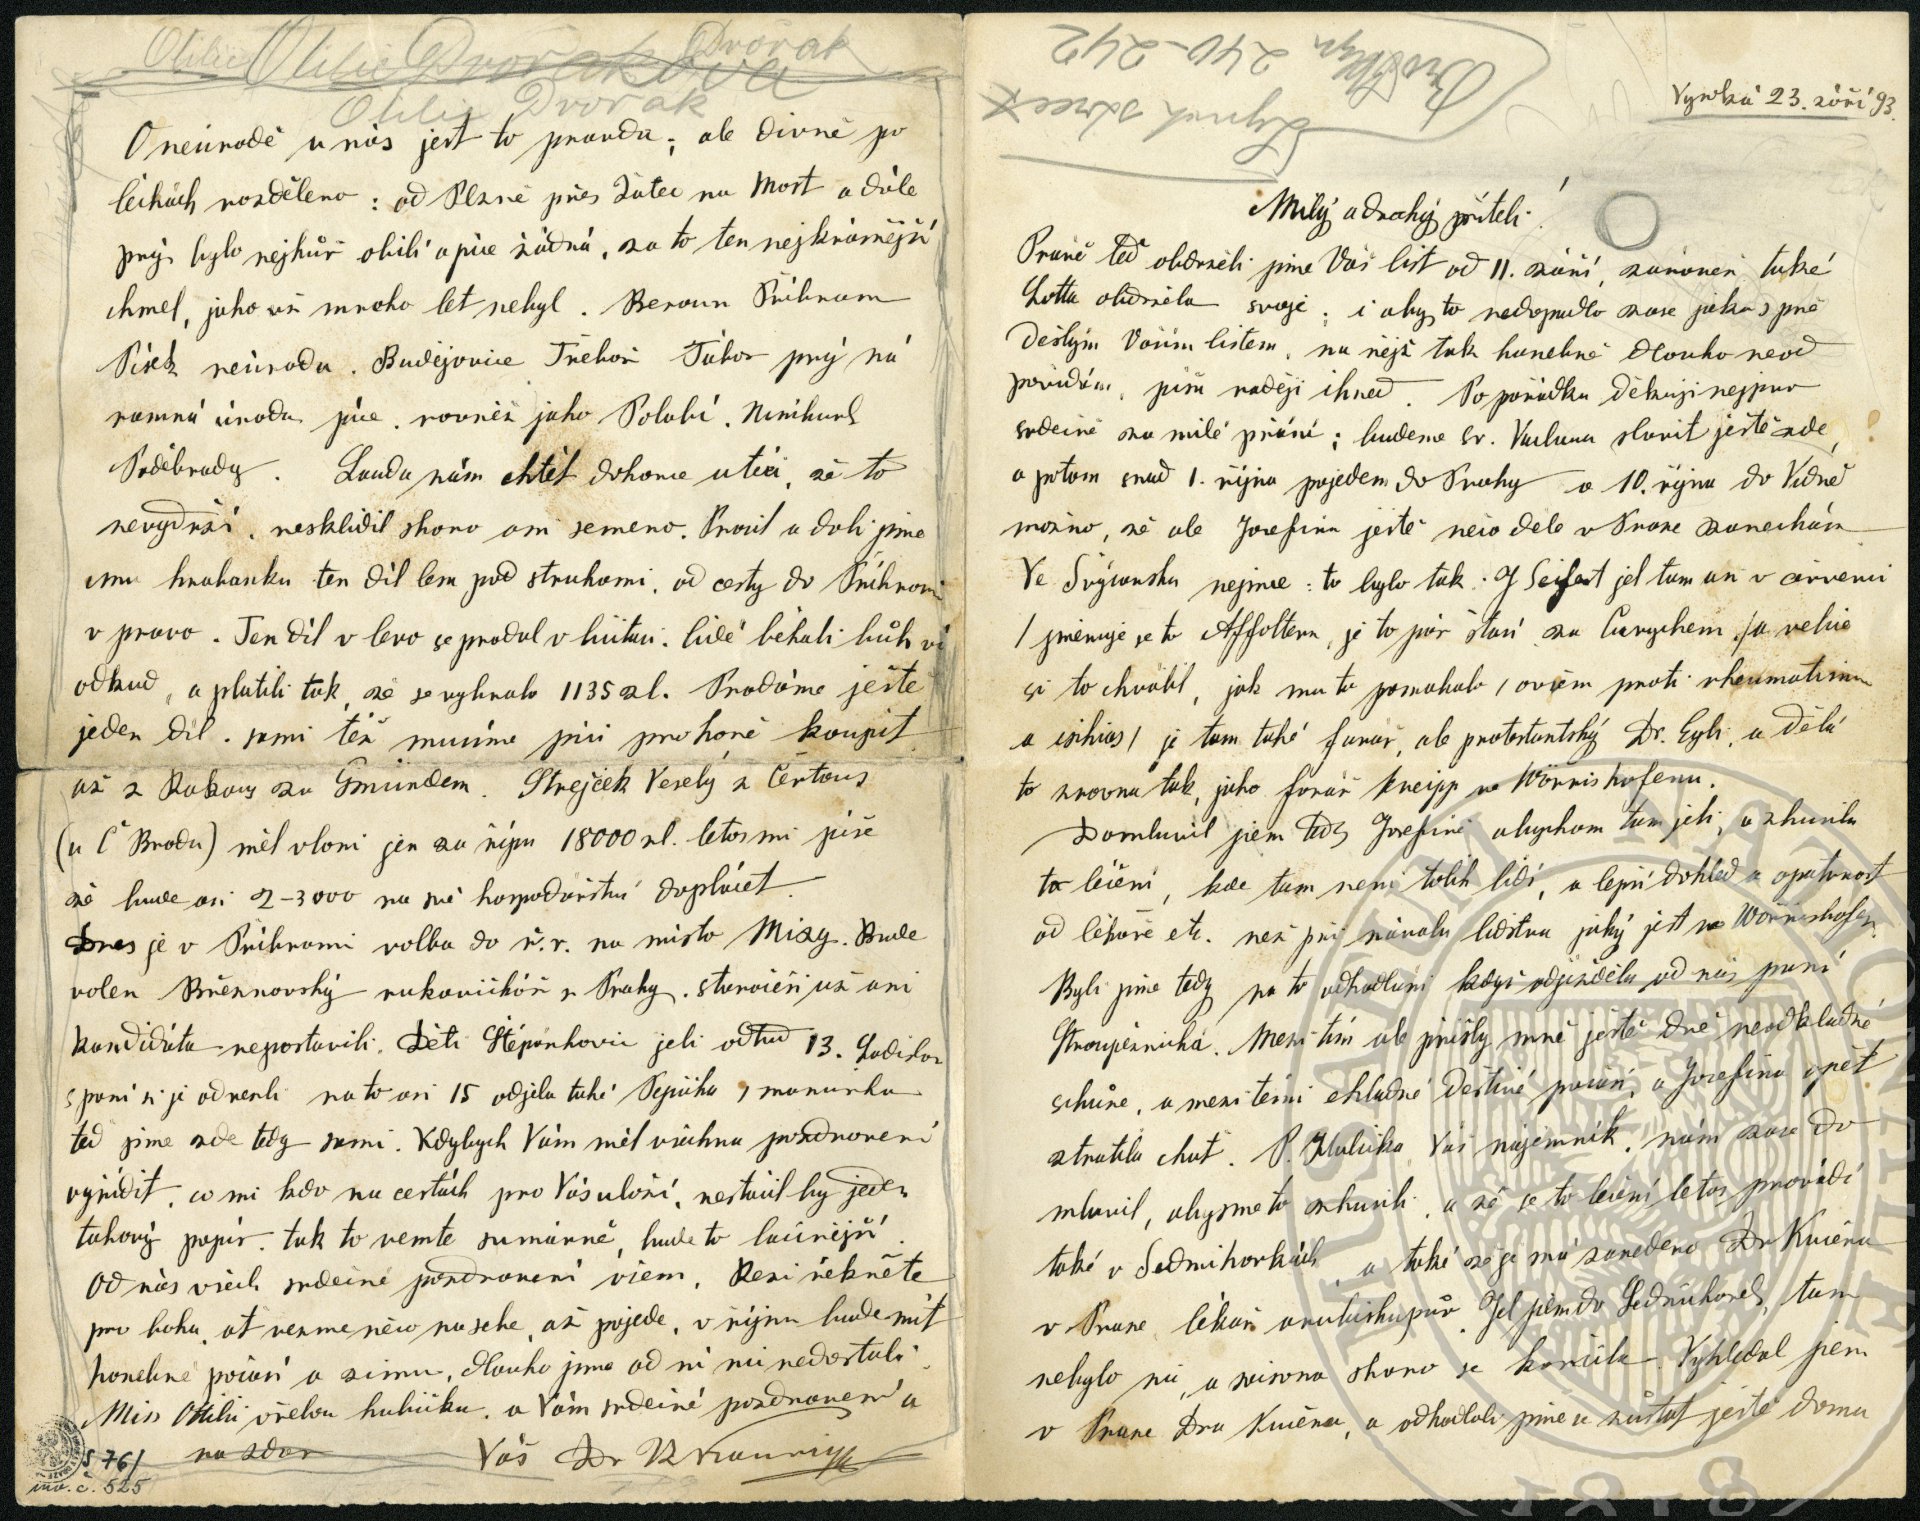 Vysoká 23. září 93.
Milý a drahý příteli!
Právě teď obdrželi jsme Váš list od 11. září, zároveň také
Lotta obdržela svoje; i aby to nedopadlo zase jako s pře
dešlým Vaším listem, na nějž tak hanebně dlouho neod
povídám, píšu raději ihned. Po pořádku děkuji nejprv
srdečně za milé přání; budeme sv. Václava slavit ještě zde,
a potom snad 1. října pojedem do Prahy a 10. října do Vídně
možno, že ale Josefinu ještě něco déle v Praze zanechám
Ve Švýcarsku nejsme: to bylo tak: J Seifert jel tam asi v červenci
/ jmenuje se to Affoltern, je to pár štací za Curychem / a velice
si to chválil, jak mu to pomohalo / ovšem proti rheumatismu
a ischias / je tam také farář, ale protestantský Dr. Egli, a dělá
to zrovna tak, jako farář Kneipp ve Wörrishofenu.
Domluvil jsem tedy Josefině abychom tam jeli, a zkusila
to léčení, kde tam není tolik lidí, a lepší dohled a opatrnost
od lékaře etc. než při návalu lidstva jaký jest ve Wörrishofen.
Byli jsme tedy na to odhodláni když odjížděla od nás paní
Stroupežnická. Mezi tím ale přišly mně ještě dvě neodkladné
schůze, a mezi těmi chladné deštivé počasí, a Josefina opět
ztratila chuť. P. Hlalička Váš nájemník, nám zase do
mluvil, abysme to zkusili, a že se to léčení letos provádí
také v Sedmihorkách, a také že je má zavedeno Dr Kučera
v Praze, lékař arcibiskupův. Jel jsem do Sedmihorek, tam
nebylo nic, a saisona skoro se končila. Vyhledal jsem
v Praze Dra Kučeru, a odhodlali jsme se zůstat ještě doma
Otilie Otilie Dvořáková Dvořak
Otilie Dvořak
O neúrodě u nás jest to pravda; ale divně po
lechách rozděleno: od Plzně přes Žatec na Most a dále
prý bylo nejhůř obilí a píce žádná, za to ten nejkrásnější
chmel, jako už mnoho let nebyl. Beroun Příbram
Písek neúroda. Budějovice Třeboň Tábor prý ná
ramná úroda píce, rovněž jako Polabí, Nimburk
Poděbrady. Lauda nám chtěl dokonce utéci, že to
nevydrží, nesklidil skoro ani semeno. Prosil a dali jsme
mu hrabanku ten díl lesa pod struhami, od cesty do Příbrami
v pravo. Ten díl v levo se prodal v licitaci, lidé běhali bůh ví
odkud, a platili tak, že se vybralo 1135 zl. Prodáme ještě
jeden díl. sami též musíme píci pro koně koupit
až z Rakous za Gmündem. Strejček Veselý z Čertous
(u Č Brodu) měl vloni jen za řípu 18000 zl. letos mi píše
že bude asi 2-3000 na své hospodářství doplácet.
Dnes je v Příbrami volba do ř. r. na místo Mixy. Bude
volen Březnovský rukavičkář z Prahy. Staročeši už ani
kandidáta nepostavili. Děti Štěpánkovic jeli odtud 13. Ladislav
s paní si je odvezli na to asi 15 odjela také Pepička s maminkou
teď jsme zde tedy sami. Kdybych Vám měl všechna pozdravení
vyřídit, co mi kdo na cestách pro Vás uloží, nestačil by jeden
takový papír, tak to vemte sumárně, bude to lacinější.
Od nás všech srdečné pozdravení všem, Rezi řekněte
pro boha, ať vezme něco na sebe, až pojede, v říjnu bude mít
hanebné počasí a zimu, dlouho jsme od ní nic nedostali.
Miss Otilii vřelou hubičku, a Vám srdečné pozdravení a
na zdar Váš Dr V Kaunic
S 76/
inv. č. 525